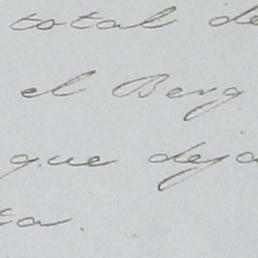 total de
el Berg
que deja
ta.